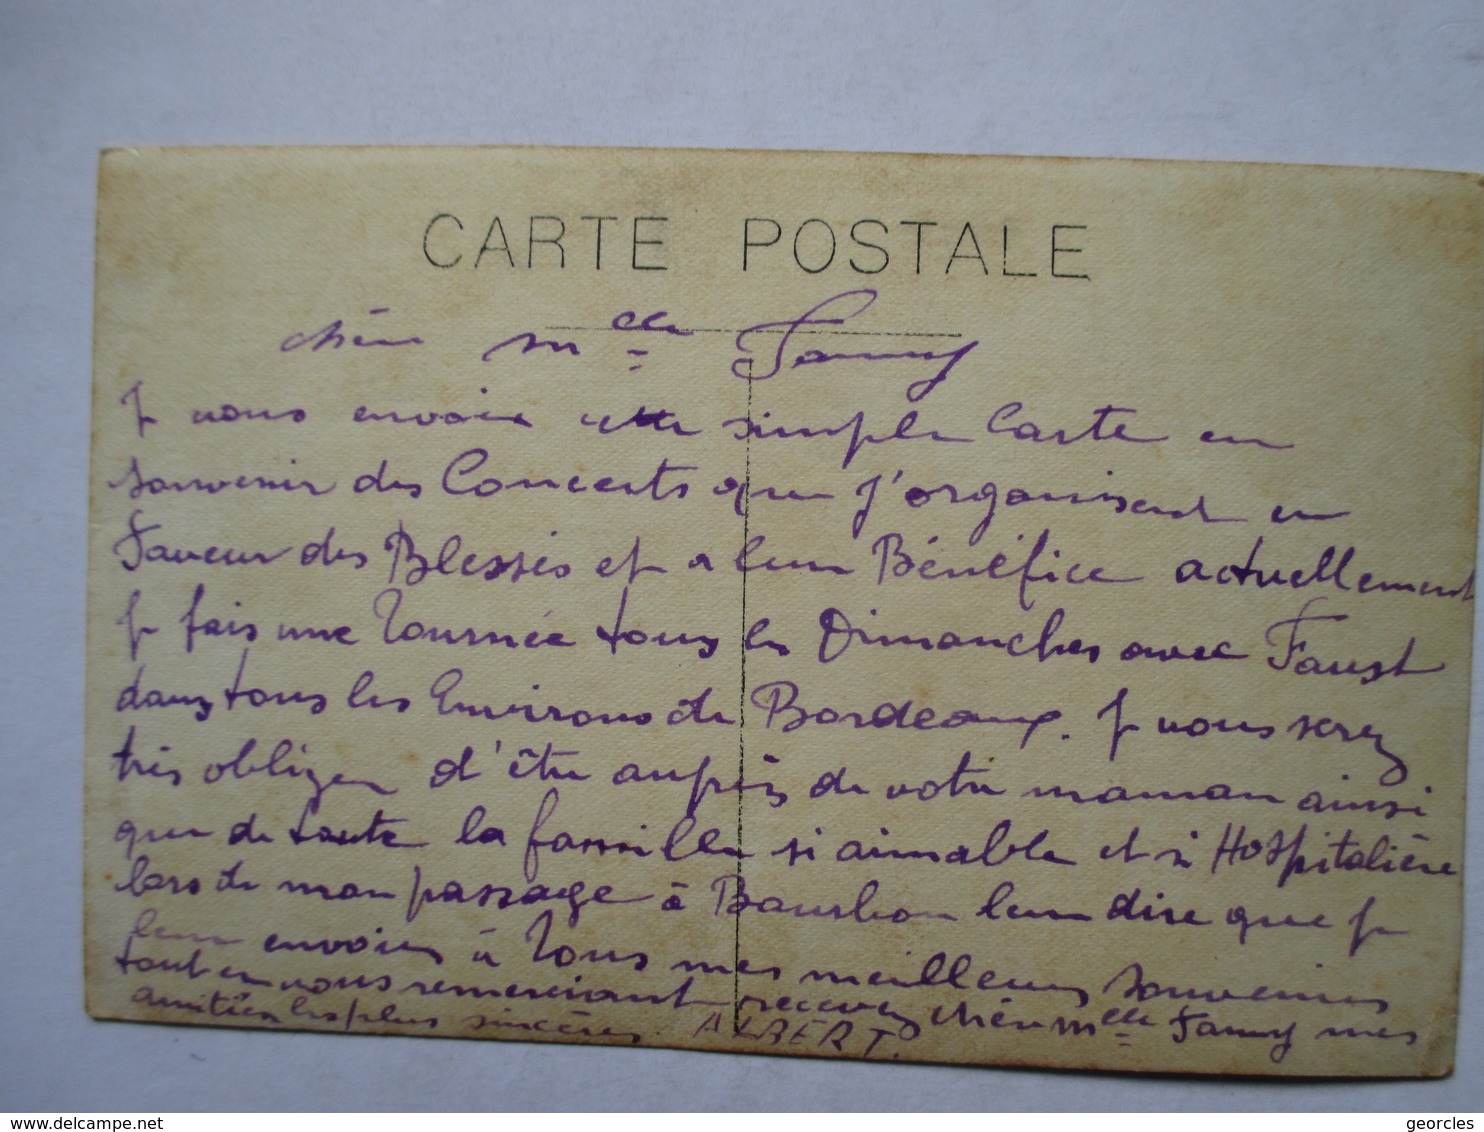 CARTE POSTALE
chère Mlle Fanny
Je vous envoie cette simple Carte en
souvenir des Concerts que j'organisent en
Faveur des Blessés et a leur Bénéfice actuellement
je fais une Tournée tous les Dimanches avec Faust
dans tous les Environs de Bordeaux. Je vous serez
très obliger d'être auprès de votre maman ainsi
que de toute la famille si aimable et si Hospitalière
lors de mon passage à Bourbon leur dire que je
leur envoies à Tous mes meilleurs souvenirs
tout en vous remerciant recevez chère Mlle Fanny mes
amitiés les plus sincères. ALBERT.
delcampe.net
georcles